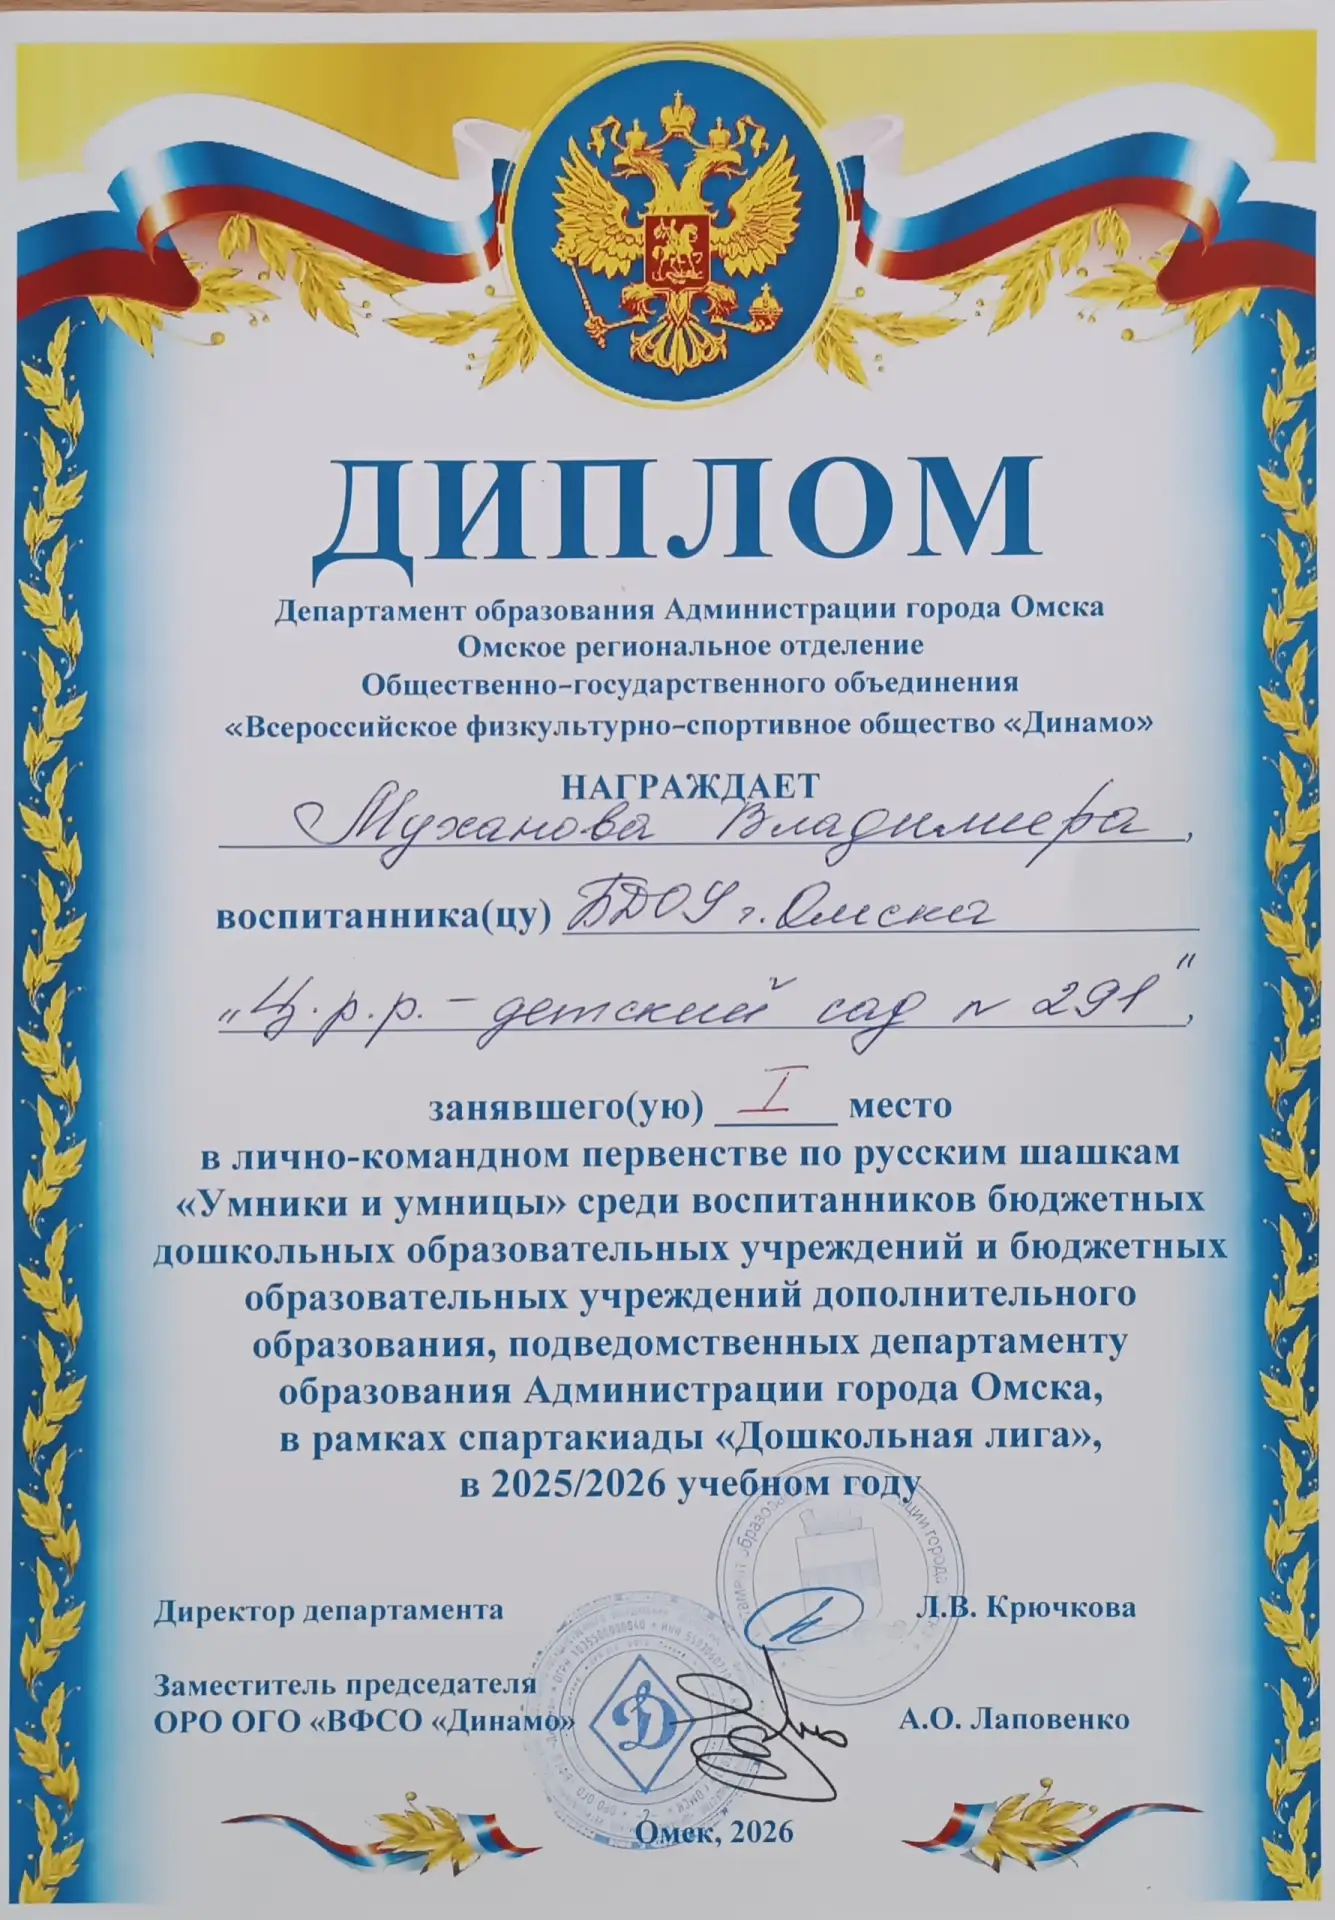 ДИПЛОМ
Департамент образования Администрации города Омска
Омское региональное отделение
Общественно-государственного объединения
«Всероссийское физкультурно-спортивное общество «Динамо»
НАГРАЖДАЕТ
Муханова Владимира,
воспитанника(цу) БДОУ г. Омска
„Ц.р.р. – детский сад № 291",
занявшего(ую) I место
в лично-командном первенстве по русским шашкам
«Умники и умницы» среди воспитанников бюджетных
дошкольных образовательных учреждений и бюджетных
образовательных учреждений дополнительного
образования, подведомственных департаменту
образования Администрации города Омска,
в рамках спартакиады «Дошкольная лига»,
в 2025/2026 учебном году
Директор департамента Л.В. Крючкова
Заместитель председателя
ОРО ОГО «ВФСО «Динамо» А.О. Лаповенко
Омск, 2026